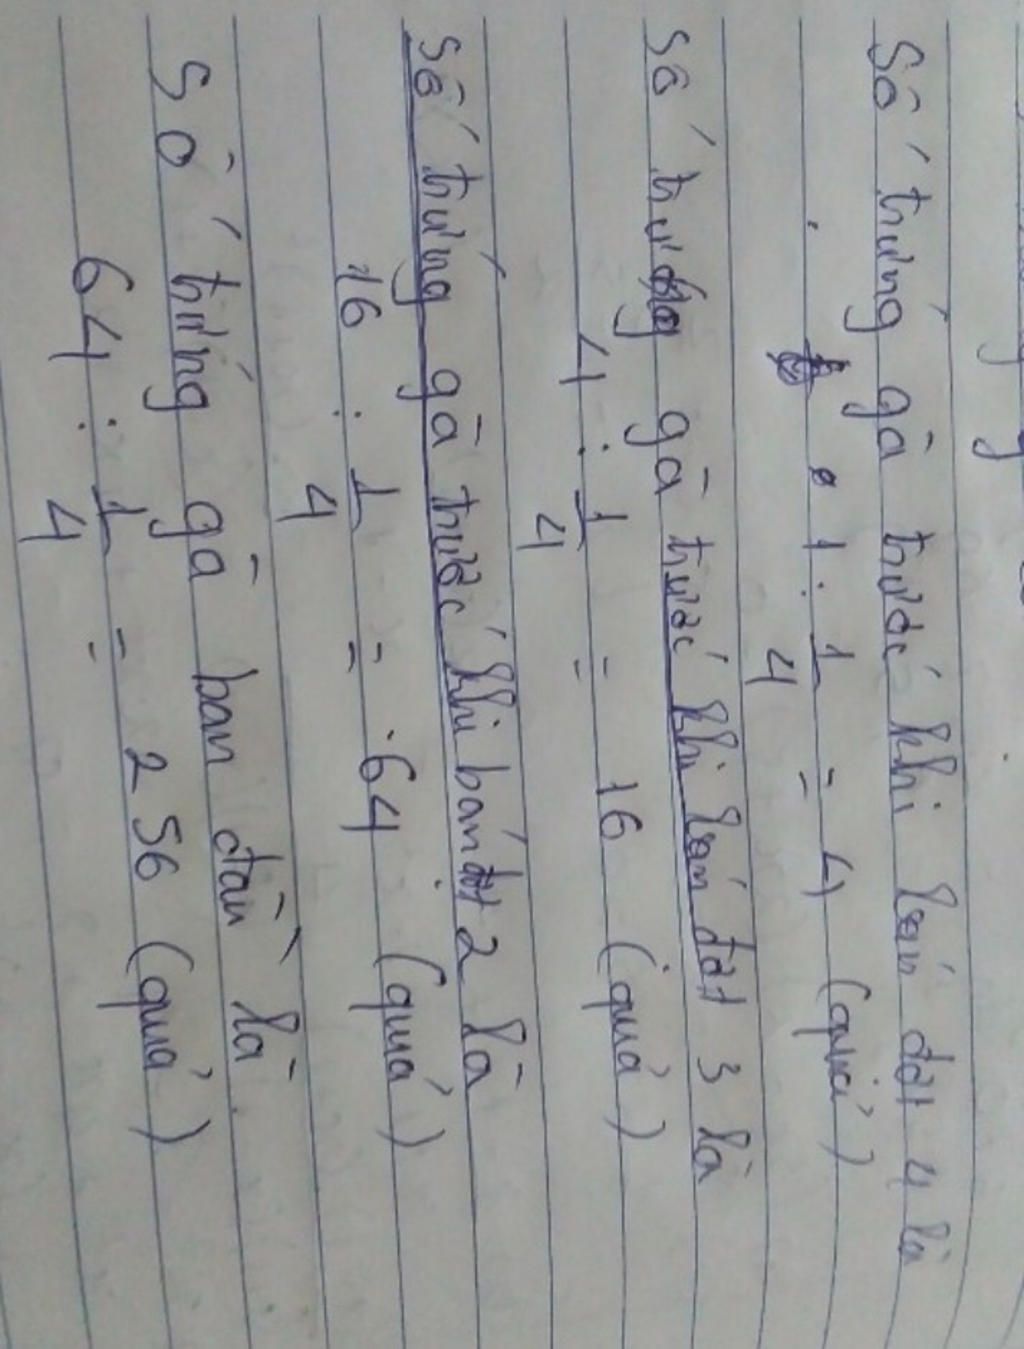 Số trứng gà trước khi bán đợt 4 là
1 : 1/4 = 4 (quả)
Số trứng gà trước khi bán đợt 3 là
4 : 1/4 = 16 (quả)
Số trứng gà trước khi bán đợt 2 là
16 : 1/4 = 64 (quả)
Số trứng gà ban đầu là
64 : 1/4 = 256 (quả)